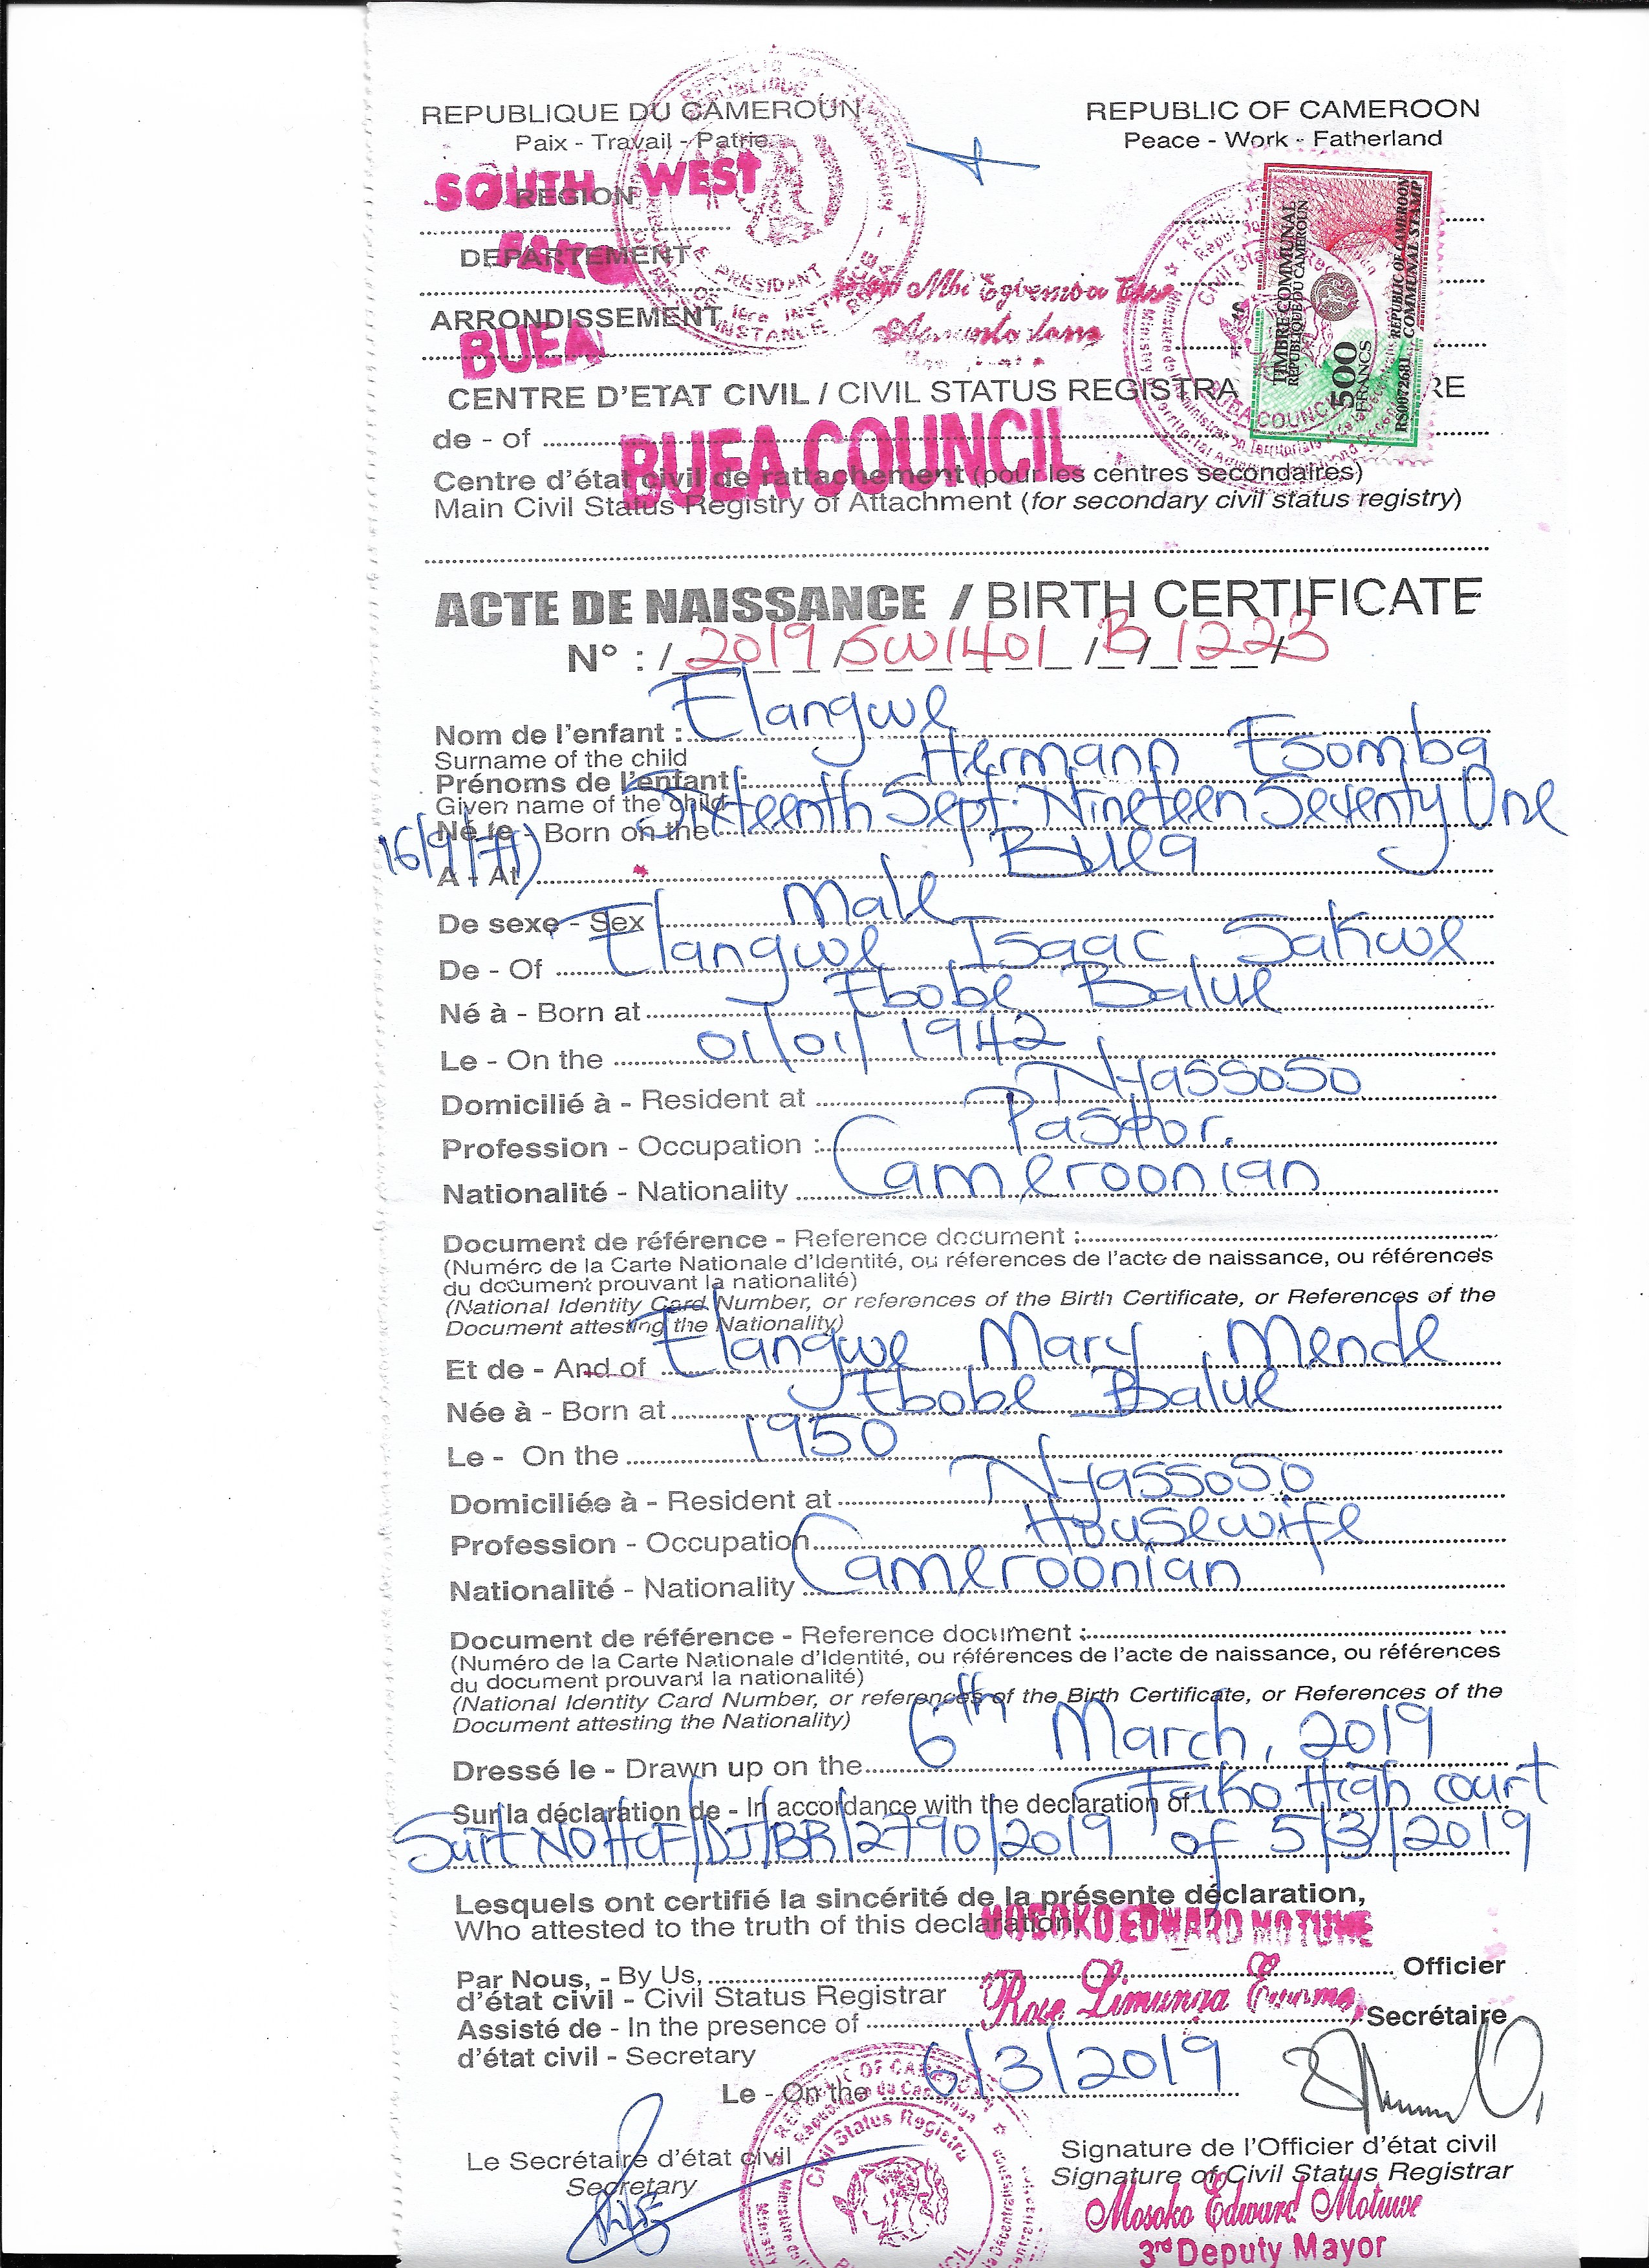 REPUBLIQUE DU CAMEROUN
Paix - Travail - Patrie
REPUBLIC OF CAMEROON
Peace - Work - Fatherland
SOUTH WEST
REGION
FAKO
DEPARTEMENT
ARRONDISSEMENT
BUEA
TIMBRE COMMUNAL
REPUBLIQUE DU CAMEROUN
500
FRANCS
REPUBLIC OF CAMEROON
COMMUNAL STAMP
RS0072681
CENTRE D'ETAT CIVIL / CIVIL STATUS REGISTRA RE
de - of BUEA COUNCIL
Centre d'état civil de rattachement (pour les centres secondaires)
Main Civil Status Registry of Attachment (for secondary civil status registry)
ACTE DE NAISSANCE / BIRTH CERTIFICATE
N° : / 2019 / SW1401 / B / 1223
Nom de l'enfant : Elangwe
Surname of the child
Prénoms de l'enfant : Hermann Esomba
Given name of the child
Né le - Born on the Sixteenth Sept. Nineteen Seventy One
16/9/71)
A - At Buea
De sexe - Sex Male
De - Of Elangwe Isaac Sakwe
Né à - Born at Ebobe Balue
Le - On the 01/01/1942
Domicilié à - Resident at Nyassoso
Profession - Occupation : Pastor.
Nationalité - Nationality Cameroonian
Document de référence - Reference document :
(Numéro de la Carte Nationale d'Identité, ou réferences de l'acte de naissance, ou références
du document prouvant la nationalité)
(National Identity Card Number, or references of the Birth Certificate, or References of the
Document attesting the Nationality)
Et de - And of Elangwe Mary Mende
Née à - Born at Ebobe Balue
Le - On the 1950
Domiciliée à - Resident at Nyassoso
Profession - Occupation Housewife
Nationalité - Nationality Cameroonian
Document de référence - Reference document :
(Numéro de la Carte Nationale d'Identité, ou références de l'acte de naissance, ou références
du document prouvant la nationalité)
(National Identity Card Number, or references of the Birth Certificate, or References of the
Document attesting the Nationality)
Dressé le - Drawn up on the 6th March, 2019
Sur la déclaration de - In accordance with the declaration of Fako High court
Suit NO HCF/DJ/BR/2790/2019 of 5/3/2019
Lesquels ont certifié la sincérité de la présente déclaration,
Who attested to the truth of this declaration
MOSOKO EDWARD MOTUWE
Par Nous, - By Us, Officier
d'état civil - Civil Status Registrar
Rose Limunga
Assisté de - In the presence of Secrétaire
d'état civil - Secretary
Le - On the 6/3/2019
Le Secrétaire d'état civil
Secretary
Signature de l'Officier d'état civil
Signature of Civil Status Registrar
Mosoko Edward Motuwe
3rd Deputy Mayor